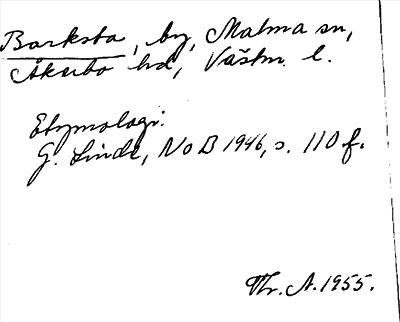 Barksta, by, Malma sn,
Åkerbo hd, Västm. l.
Etymologi.
G. Linde, NoB 1946, s. 110 f.
Thr. A. 1955.